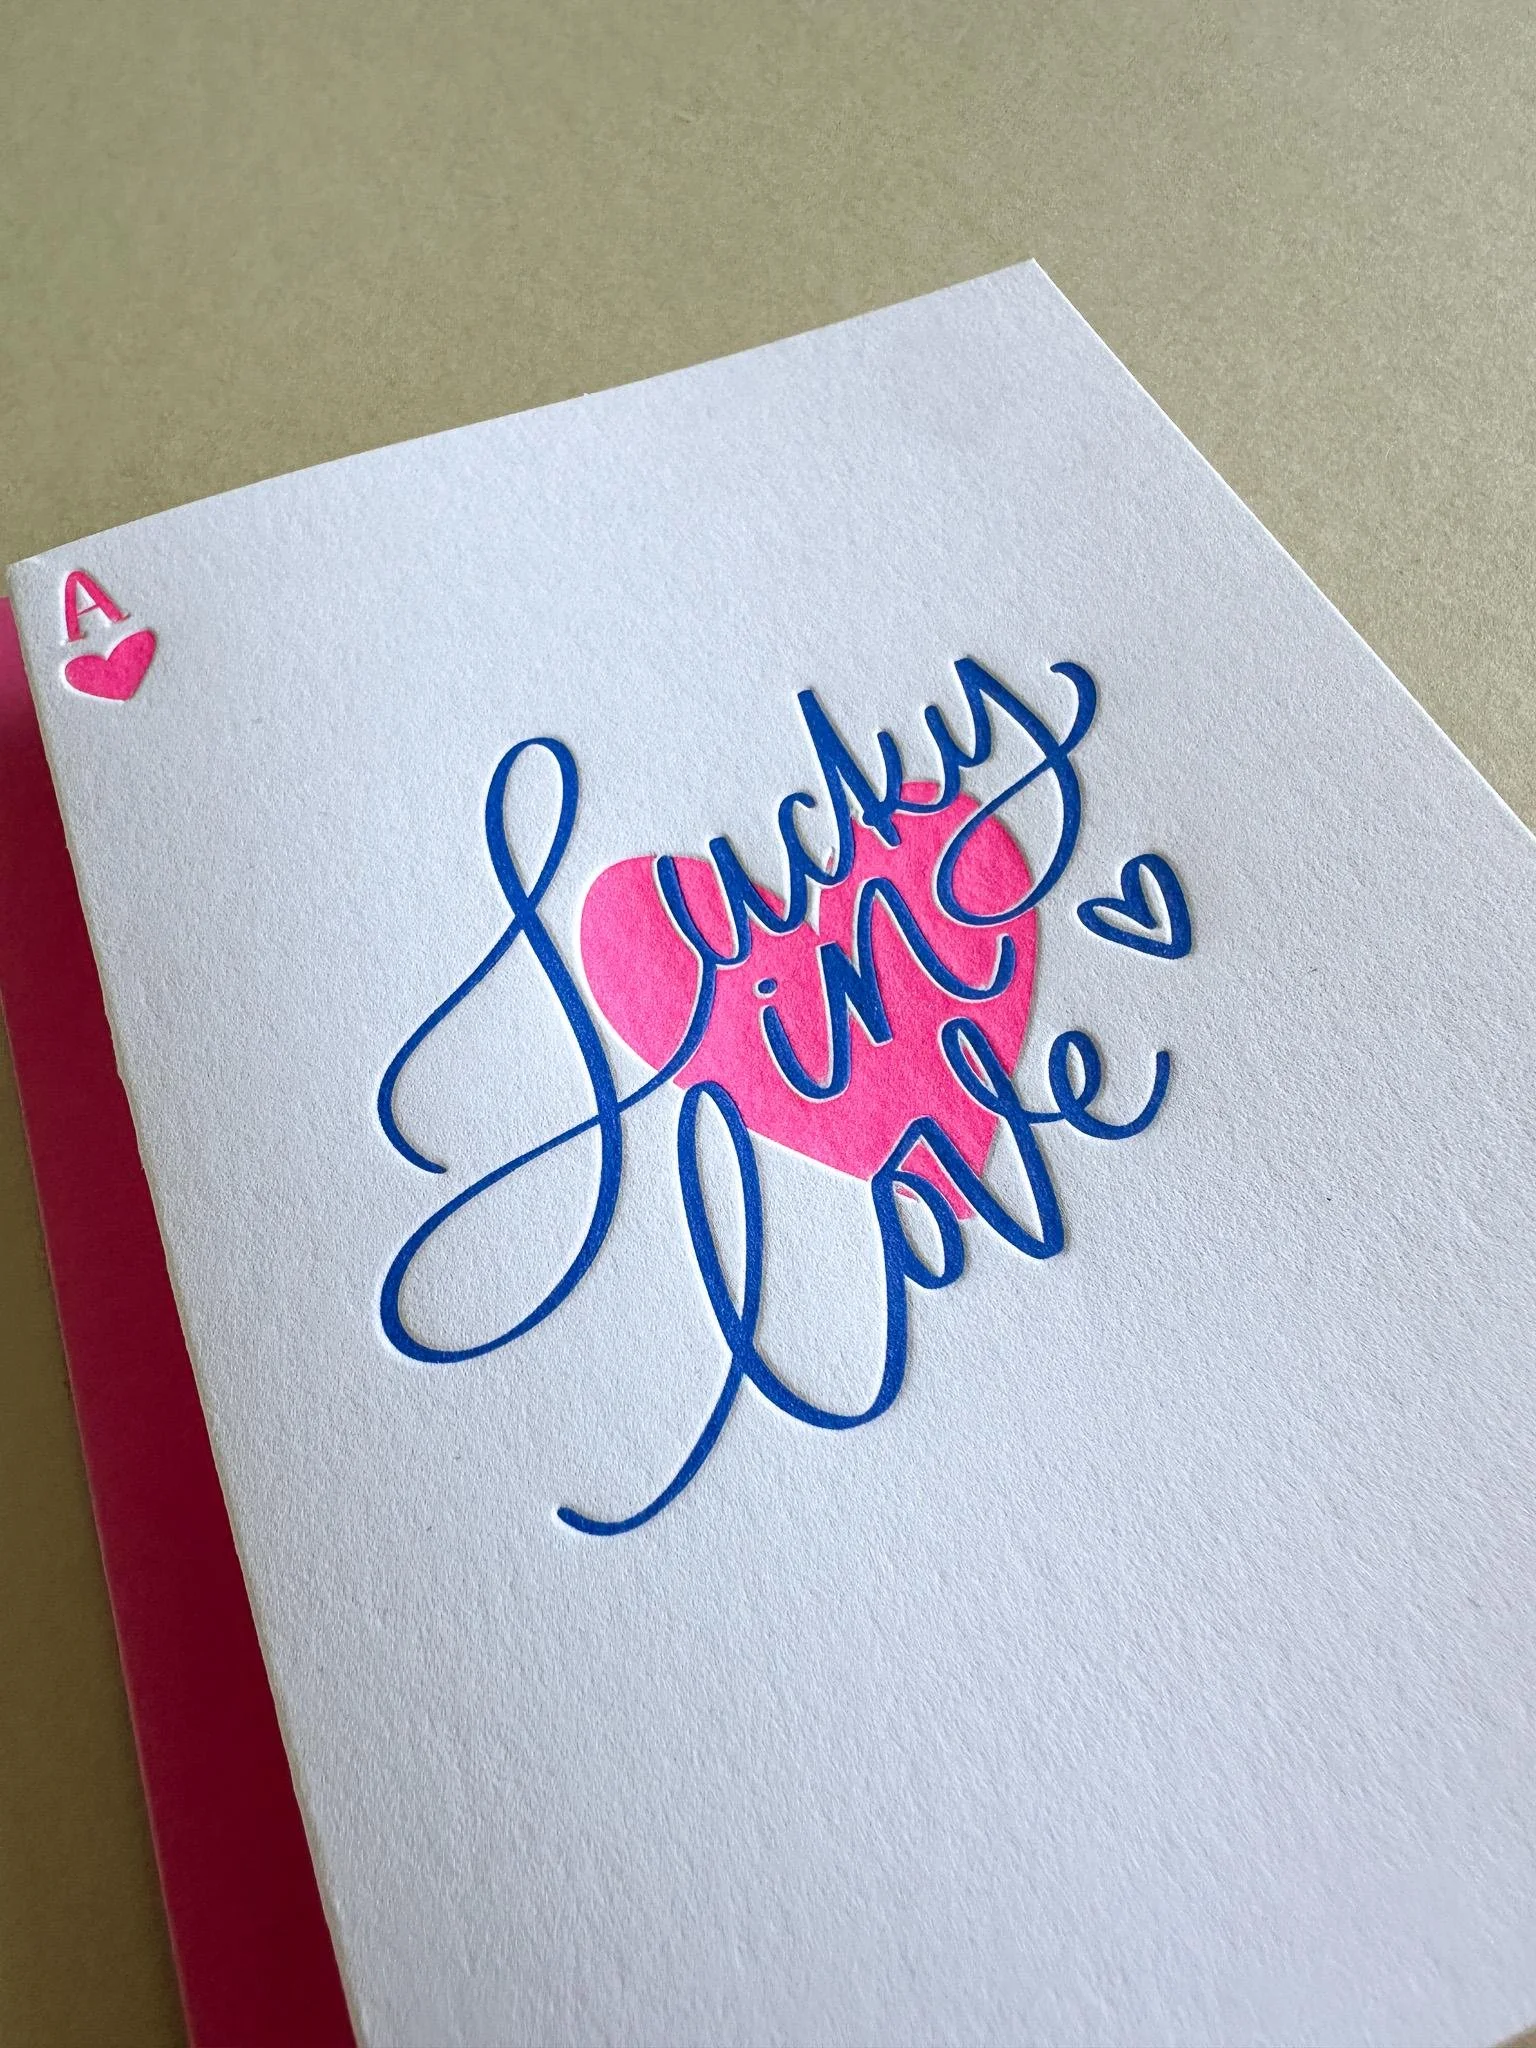 A
Lucky
in
love